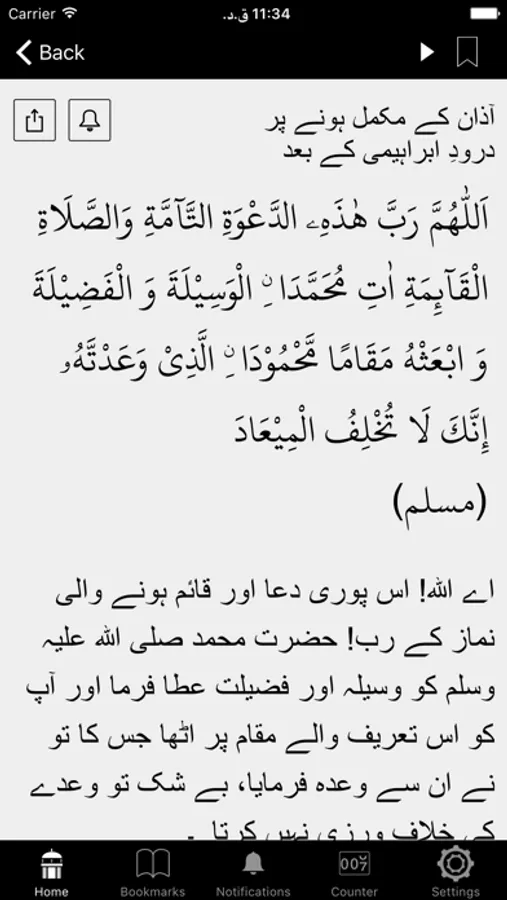 Carrier 11:34 ق.د.
Back
آذان کے مکمل ہونے پر
درودِ ابراہیمی کے بعد
اَللّٰهُمَّ رَبَّ هٰذَهِۦ الدَّعْوَةِ التَّآمَّةِ وَالصَّلَاةِ
الْقَآئِمَةِ اٰتِ مُحَمَّدَا ۨنِ الْوَسِيْلَةَ وَ الْفَضِيْلَةَ
وَ ابْعَثْهُ مَقَامًا مَّحْمُوْدَا ۨنِ الَّذِىْ وَعَدْتَّهُۥ
إِنَّكَ لَا تُخْلِفُ الْمِيْعَادَ
(مسلم)
اے اللہ! اس پوری دعا اور قائم ہونے والی
نماز کے رب! حضرت محمد صلی اللہ علیہ
وسلم کو وسیلہ اور فضیلت عطا فرما اور آپ
کو اس تعریف والے مقام پر اٹھا جس کا تو
نے ان سے وعدہ فرمایا، بے شک تو وعدے
کی خلاف ورزی نہیں کرتا ۔
Home Bookmarks Notifications Counter Settings